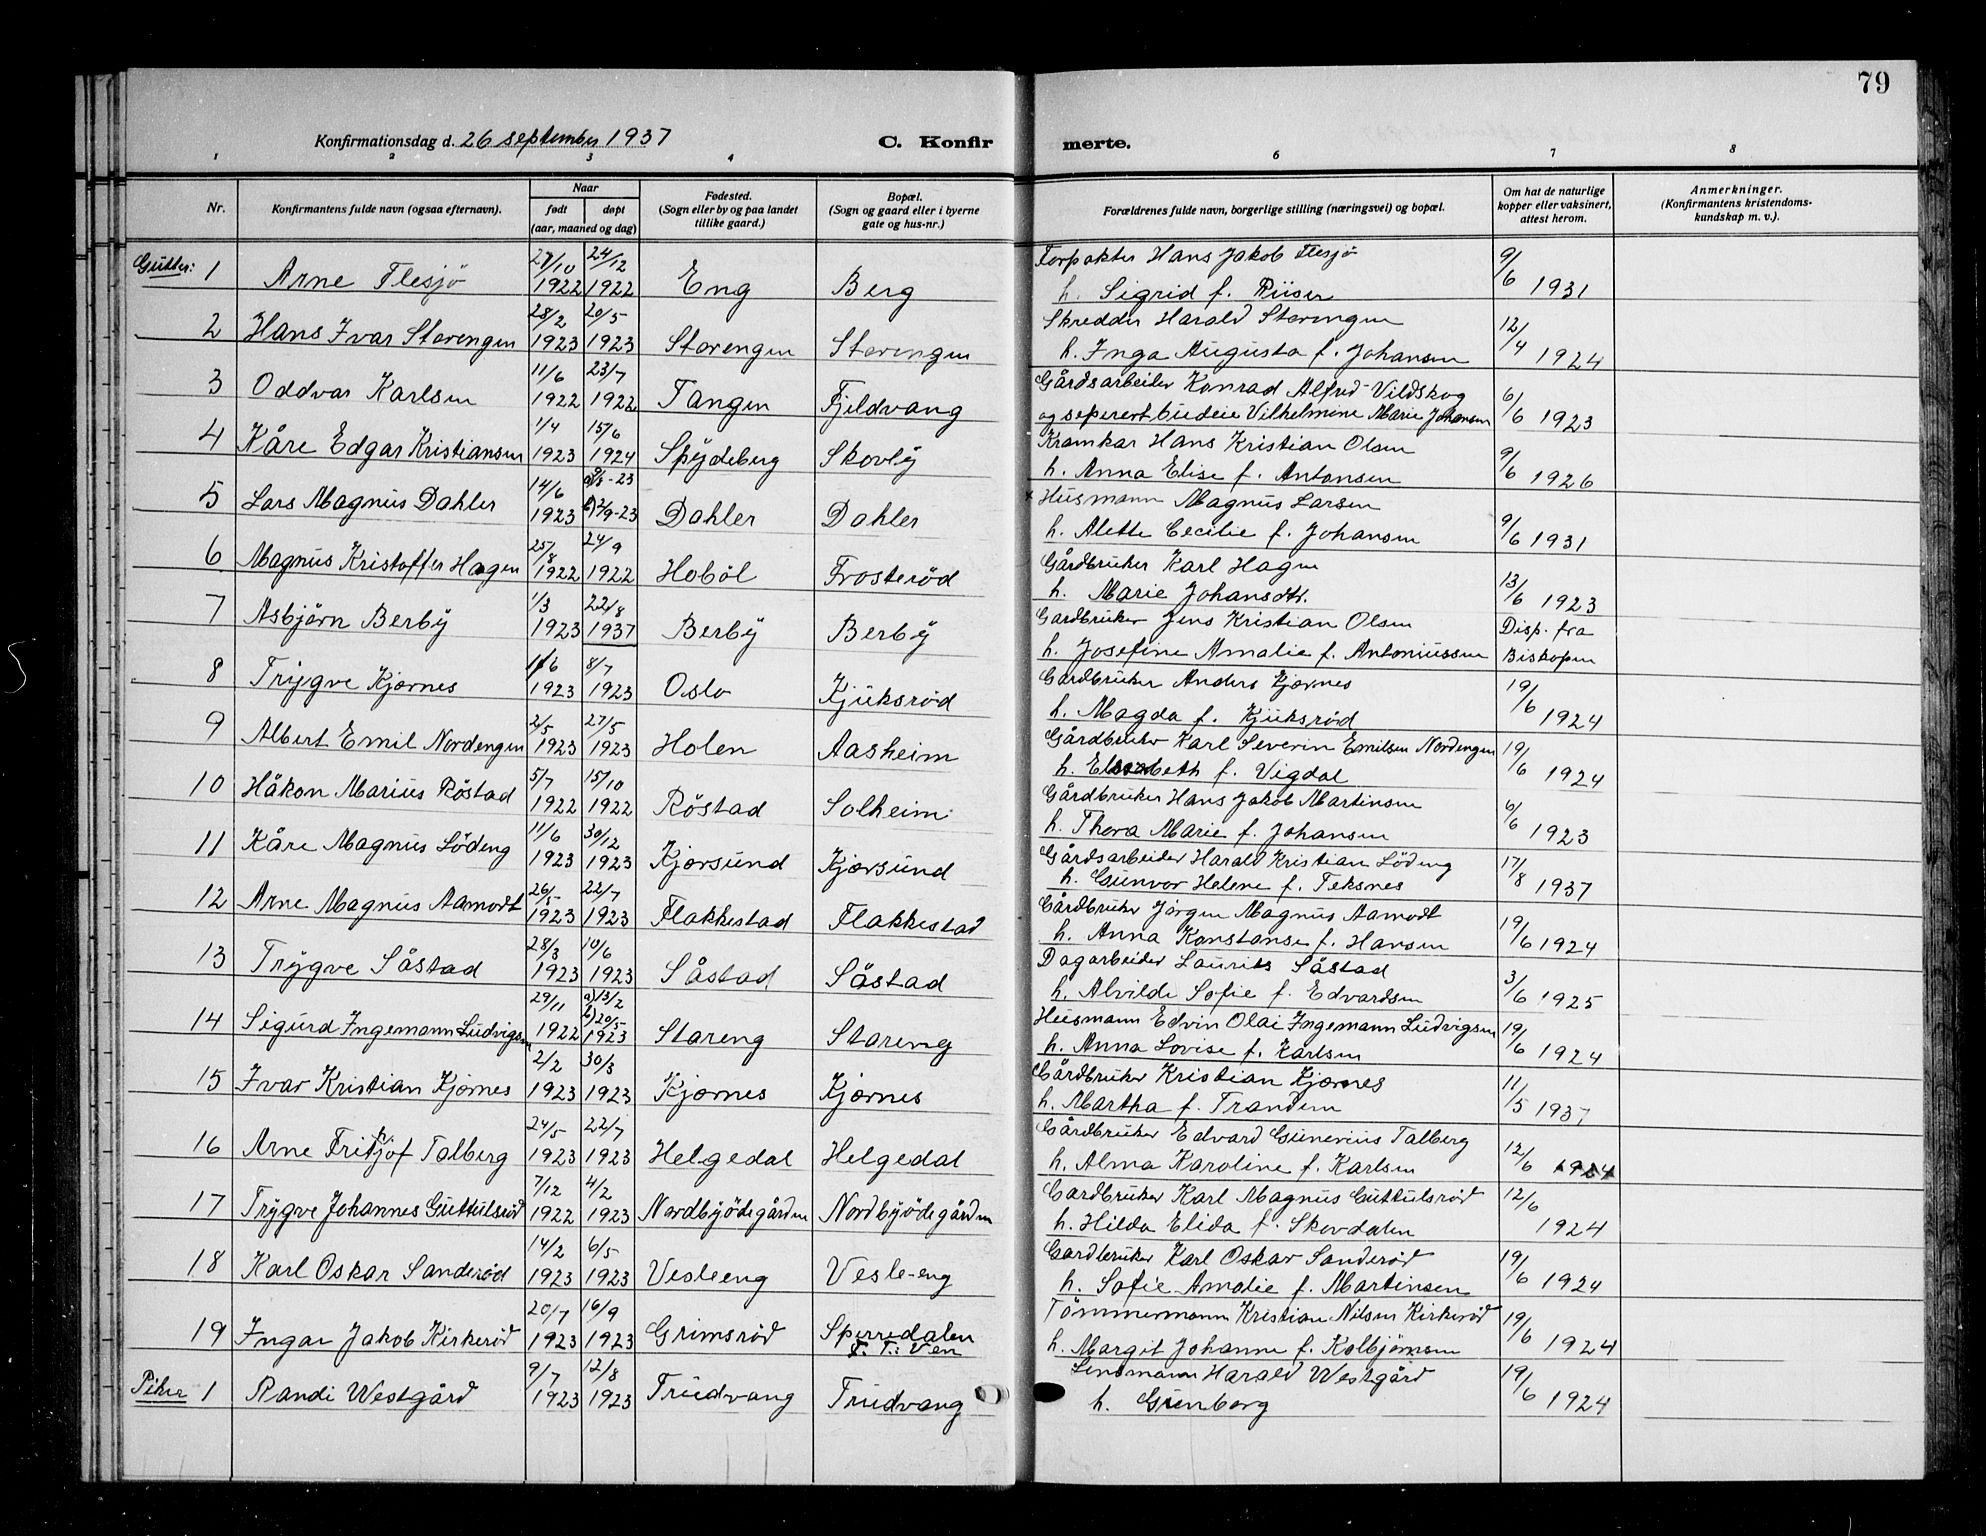 79
Konfirmationsdag d. 26 september 1937
C. Konfir
merte.
1 2 3 4 6 7 8
Nr.
Konfirmantens fulde navn (ogsaa efternavn).
Naar
født døpt
(aar, maaned og dag)
Fødested.
(Sogn eller by og paa landet
tillike gaard.)
Bopæl.
(Sogn og gaard eller i byerne
gate og hus-nr.)
Forældrenes fulde navn, borgerlige stilling (næringsvei) og bopæl.
Om hat de naturlige
kopper eller vaksinert,
attest herom.
Anmerkninger.
(Konfirmantens kristendoms-
kundskap m. v.)
Gutter: 1 Arne Flesjö 27/10 1922 24/12 1922 Eng Berg
Forpakter Hans Jakob Flesjö 9/6 1931
h. Sigrid f. Riiser
2 Hans Ivar Storengen 28/2 1923 20/5 1923 Storengen Storengen
Skredder Harald Storengen 12/4 1924
h. Inga Augusta f. Johansen
3 Oddvar Karlsen 11/6 1922 23/7 1922 Tangen Fjeldvang
Gårdsarbeider Konrad Alfred Vildskog 6/6 1923
og seperert budeie Vilhelmine Marie Johansen
4 Kåre Edgar Kristiansen 1/4 1923 15/6 1924 Spydeberg Skovly
Kramkar Hans Kristian Olsen 9/6 1926
h. Anna Elise f. Antonsen
5 Lars Magnus Dahler 14/6 1923 b) 2/9-23 Dahler Dahler
Husmann Magnus Larsen 9/6 1931
h. Alette Cecilie f. Johansen
6 Magnus Kristoffer Hagen 25/8 1922 24/9 1922 Hobøl Frosterød
Gårdbruker Karl Hagen 13/6 1923
h. Marie Johansdtr.
7 Asbjørn Berby 1/3 1923 22/8 1937 Berby Berby
Gardbruker Jens Kristian Olsen Disp. fra
h. Josefine Amalie f. Antoniussen Biskopen
8 Trygve Kjærnes 1/6 1923 8/7 1923 Oslo Kjuksrød
Gardbruker Anders Kjærnes 19/6 1924
h. Magda f. Kjuksrød
9 Albert Emil Nordengen 2/5 1923 27/5 1923 Holen Aasheim
Gårdbruker Karl Severin Emilsen Nordengen 19/6 1924
h. Elisabeth f. Vigdal
10 Håkon Marius Röstad 5/7 1922 15/10 1922 Röstad Solheim
Gårdbruker Hans Jakob Martinsen 6/6 1923
h. Thora Marie f. Johansen
11 Kåre Magnus Lödeng 11/6 1923 30/12 1923 Kjærsund Kjærsund
Gårdsarbeider Harald Kristian Lödeng 17/8 1937
h. Gunvor Helene f. Teksnes
12 Arne Magnus Aamodt 26/5 1923 22/7 1923 Flakkestad Flakkestad
Gårdbruker Jørgen Magnus Aamodt 19/6 1924
h. Anna Konstanse f. Hansen
13 Trygve Såstad 28/3 1923 10/6 1923 Såstad Såstad
Dagarbeider Laurits Såstad 3/6 1925
h. Alvilde Sofie f. Edvardsen
14 Sigurd Ingemann Ludvigsen 29/11 1922 a) 13/2 b) 20/5 1923 Stareng Stareng
Husmann Edvin Olai Ingemann Ludvigsen 19/6 1924
h. Anna Lovise f. Karlsen
15 Ivar Kristian Kjærnes 2/2 1923 30/3 1923 Kjærnes Kjærnes
Gårdbruker Kristian Kjærnes 11/5 1937
h. Martha f. Trandem
16 Arne Frithjof Talberg 24/5 1923 22/7 1923 Helgedal Helgedal
Gårdbruker Edvard Gunerius Talberg 12/6 1924
h. Alma Karoline f. Karlsen
17 Trygve Johannes Guttulsrød 7/12 1922 4/2 1923 Nordbyödegården Nordbyödegården
Gardbruker Karl Magnus Guttulsrød 12/6 1924
h. Hilda Elida f. Skovdalen
18 Karl Oskar Sanderød 14/2 1923 6/5 1923 Vesleeng Vesle-eng
Gardbruker Karl Oskar Sanderød 19/6 1924
h. Sofie Amalie f. Martinsen
19 Ingar Jakob Kirkerød 20/7 1923 16/9 1923 Grimsrød Sperredalen
Tømmermann Kristian Nilsen Kirkerød 19/6 1924
h. Margit Johanne f. Kolbjørnsen
Piker 1 Randi Westgård 9/7 1923 12/8 1923 Trudvang Trudvang
Lensmann Harald Westgård 19/6 1924
h. Gunborg